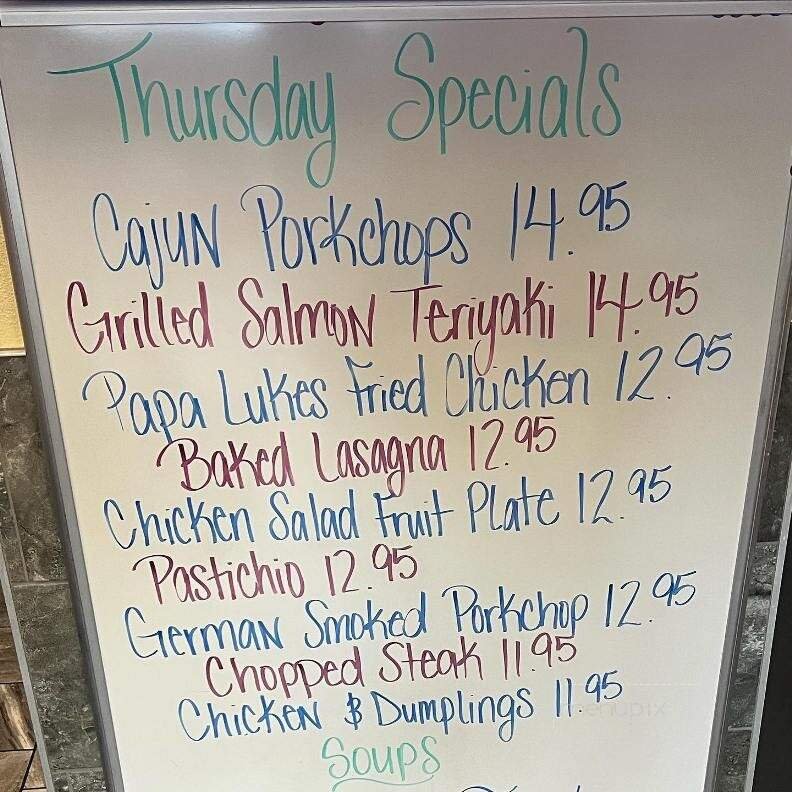 Thursday Specials
Cajun Porkchops 14.95
Grilled Salmon Teriyaki 14.95
Papa Lukes Fried Chicken 12.95
Baked Lasagna 12.95
Chicken Salad Fruit Plate 12.95
Pastichio 12.95
German Smoked Porkchop 12.95
Chopped Steak 11.95
Chicken & Dumplings 11.95
menupix
Soups